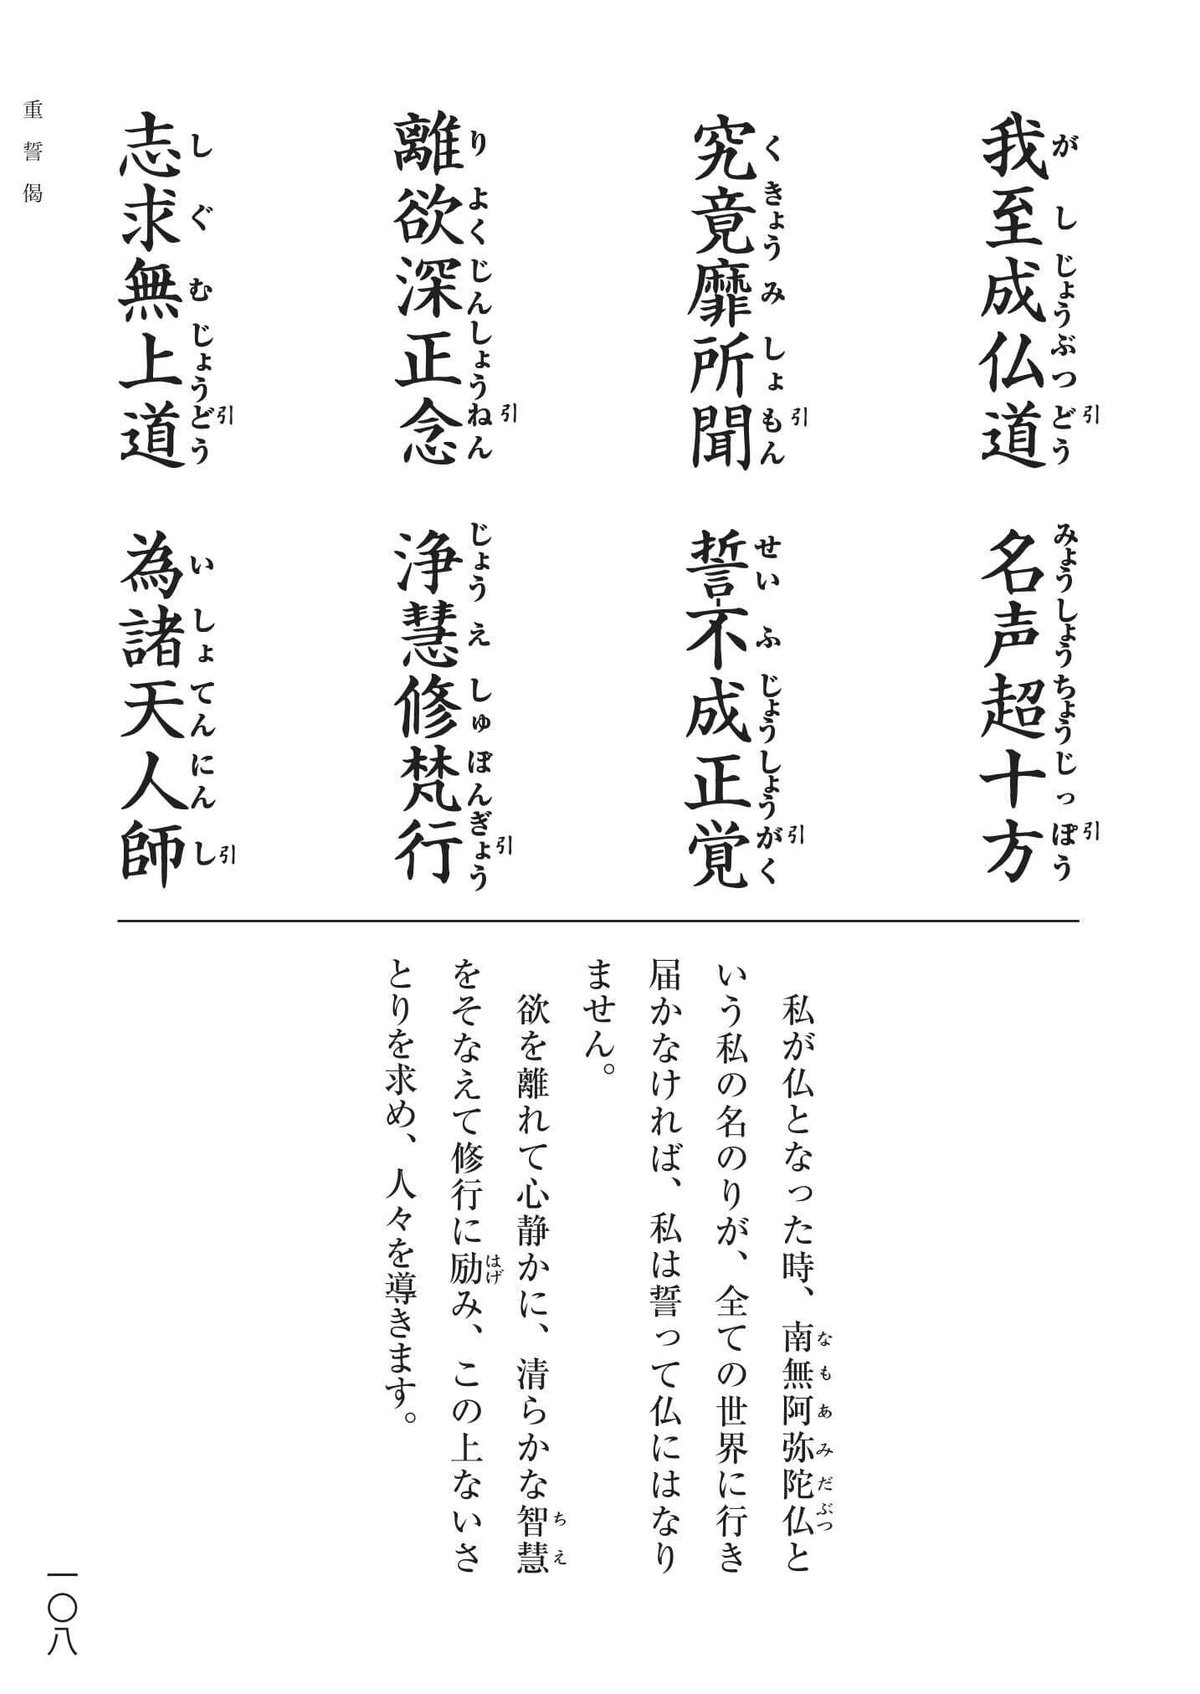 重誓偈
我至成仏道 名声超十方
がしじょうぶつどう引 みょうしょうちょうじっぽう引
究竟靡所聞 誓不成正覚
くきょうみしょもん引 せいふじょうしょうがく引
離欲深正念 浄慧修梵行
りよくじんしょうねん引 じょうえしゅぼんぎょう引
志求無上道 為諸天人師
しぐむじょうどう引 いしょてんにんし引
私が仏となった時、南無阿弥陀仏と
なもあみだぶつ
いう私の名のりが、全ての世界に行き
届かなければ、私は誓って仏にはなり
ません。
欲を離れて心静かに、清らかな智慧
ちえ
をそなえて修行に励み、この上ないさ
はげ
とりを求め、人々を導きます。
一〇八